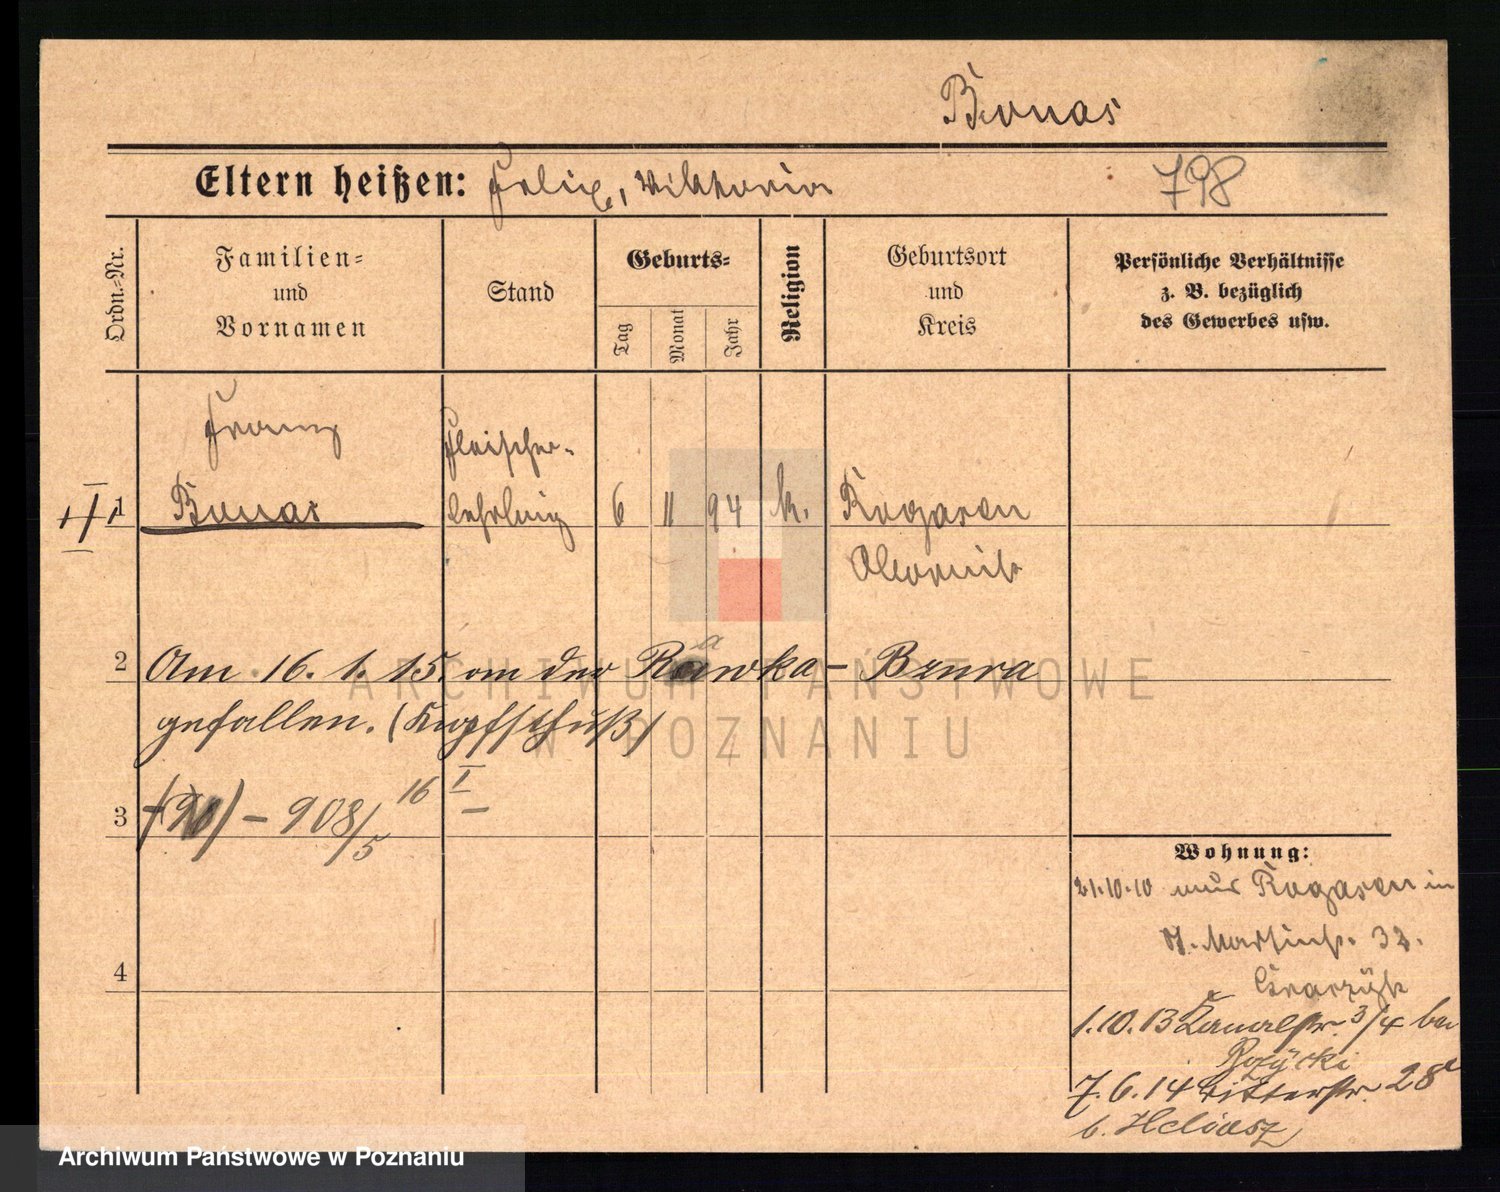 Bonas
Eltern heißen: Felix, Viktoria 798
Ordn.-Nr.
Familien-
und
Vornamen
Stand
Geburts-
Tag
Monat
Jahr
Religion
Geburtsort
und
Kreis
Persönliche Verhältnisse
z. B. bezüglich
des Gewerbes usw.
Franz Fleischer-
1 Bonas lehrling 6 11 94 k. Rogasen
Obornik
2 Am 16. 1. 15. an der Rawka - Bzura
gefallen. (Kopfschuß)
3 - 908/5 16 I
4
Wohnung:
21.10.10 aus Rogasen in
St. Martinstr. 33.
1.10.13 Kanalstr. 3/4 bei
Rozycki
7.6.14 Ritterstr. 28
b. Heliasz
ARCHIWUM PAŃSTWOWE
W POZNANIU
Archiwum Państwowe w Poznaniu